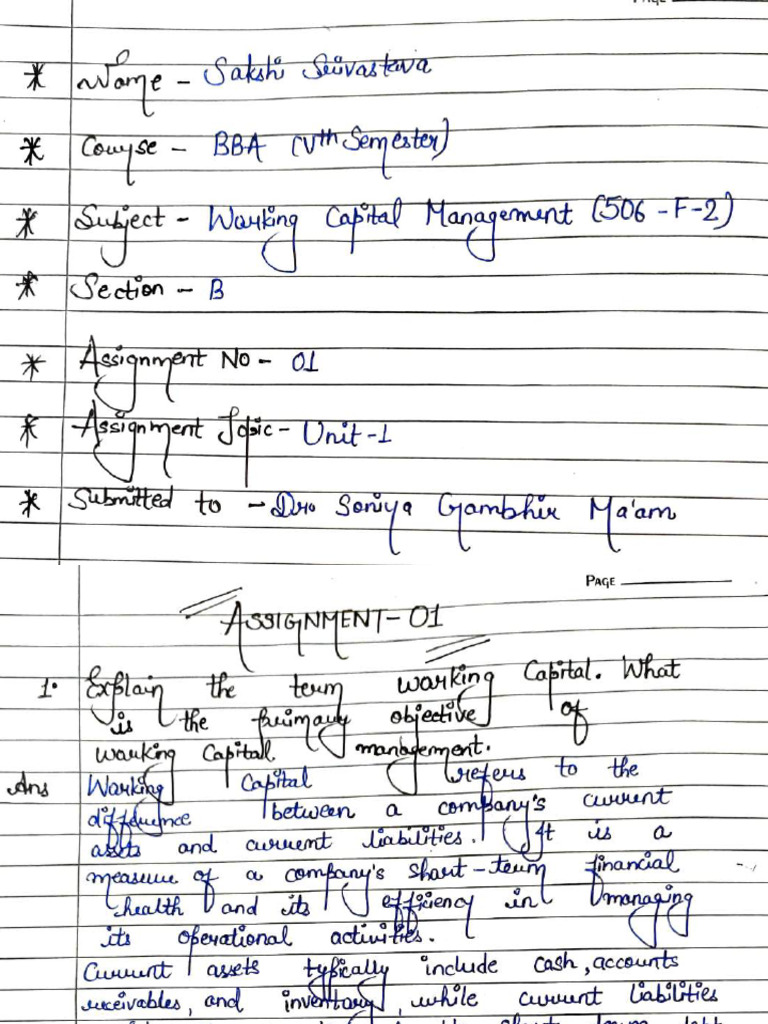 * Name - Sakshi Srivastava
* Course - BBA (Vth Semester)
* Subject - Working Capital Management (506-F-2)
* Section - B
* Assignment No - 01
* Assignment Topic - Unit-1
* Submitted to - Dr. Soniya Gambhir Ma'am
PAGE
ASSIGNMENT-01
1. Explain the term working Capital. What
is the primary objective of
working Capital management.
Ans Working Capital refers to the
difference between a company's current
assets and current liabilities. It is a
measure of a company's short-term financial
health and its efficiency in managing
its operational activities.
Current assets typically include cash, accounts
receivables, and inventory, while current liabilities